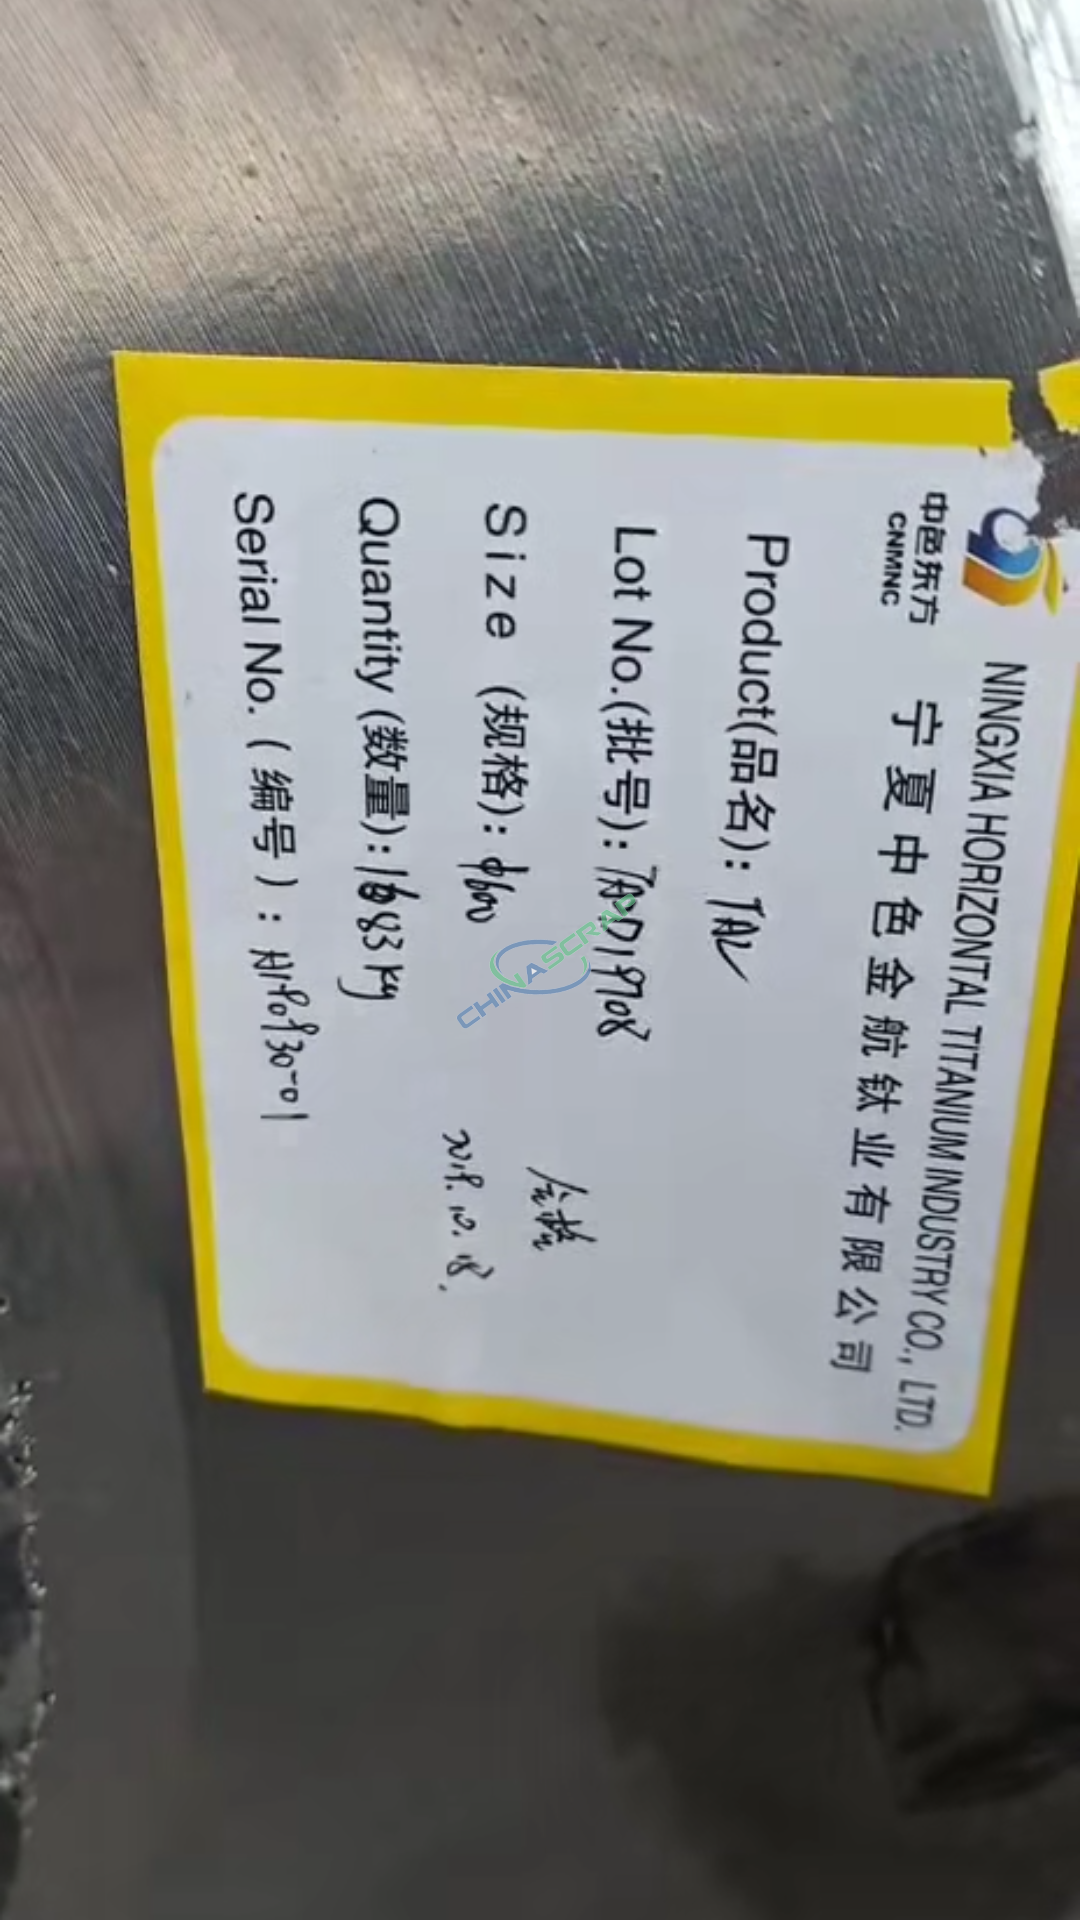 中色东方
CNMNC
NINGXIA HORIZONTAL TITANIUM INDUSTRY CO., LTD.
宁夏中色金航钛业有限公司
Product(品名):
Lot No.(批号):
Size (规格): φ600
Quantity (数量): 1683 kg
Serial No. (编号):
CHINASCRAP